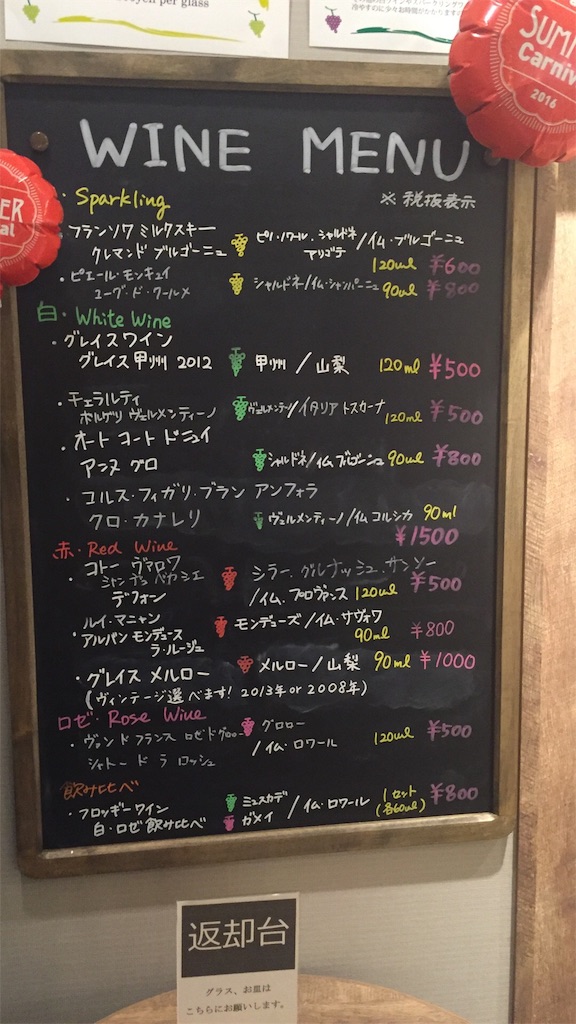 per glass
SUMM
Carniv
2016
ER
al
WINE MENU
・Sparkling
※税抜表示
フランソワ ミルクスキー
クレマンド ブルゴーニュ
ピノ・ノワール、シャルドネ/仏・ブルゴーニュ
アリゴテ
120ml ¥600
・ピエール・モンキュイ
ユーグ・ド・クールメ
シャルドネ/仏・シャンパーニュ 90ml ¥800
白・White Wine
・グレイスワイン
グレイス甲州 2012 甲州/山梨 120ml ¥500
・チェラルティ
ボルゲリ ヴェルメンティーノ
ヴェルメンティノ/イタリア トスカーナ
120ml ¥500
・オート コート ド ニュイ
アンヌ グロ シャルドネ/仏 ブルゴーニュ 90ml ¥800
・コルス・フィガリ・ブラン アンフォラ
クロ・カナレリ ヴェルメンティーノ/仏 コルシカ 90ml
¥1500
赤・Red Wine
・コトー ヴァロワ
デフォン
シラー、グルナッシュ、サンソー
/仏・プロヴァンス 120ml ¥500
・ルイ・マニャン
アルパン モンデュース
ラ・ルージュ
モンデューズ/仏・サヴォワ
90ml ¥800
・グレイス メルロー メルロー/山梨 90ml ¥1000
(ヴィンテージ選べます! 2013年or2008年)
ロゼ・Rose Wine
・ヴァン ド フランス ロゼ ド グロロー
シャトー ド ラ ロッシュ
グロロー
/仏・ロワール 120ml ¥500
飲み比べ
・フロッギーワイン
白・ロゼ飲み比べ
ミュスカデ
ガメイ
/仏・ロワール
1セット
(各60ml)
¥800
返却台
グラス、お皿は
こちらにお願いします。